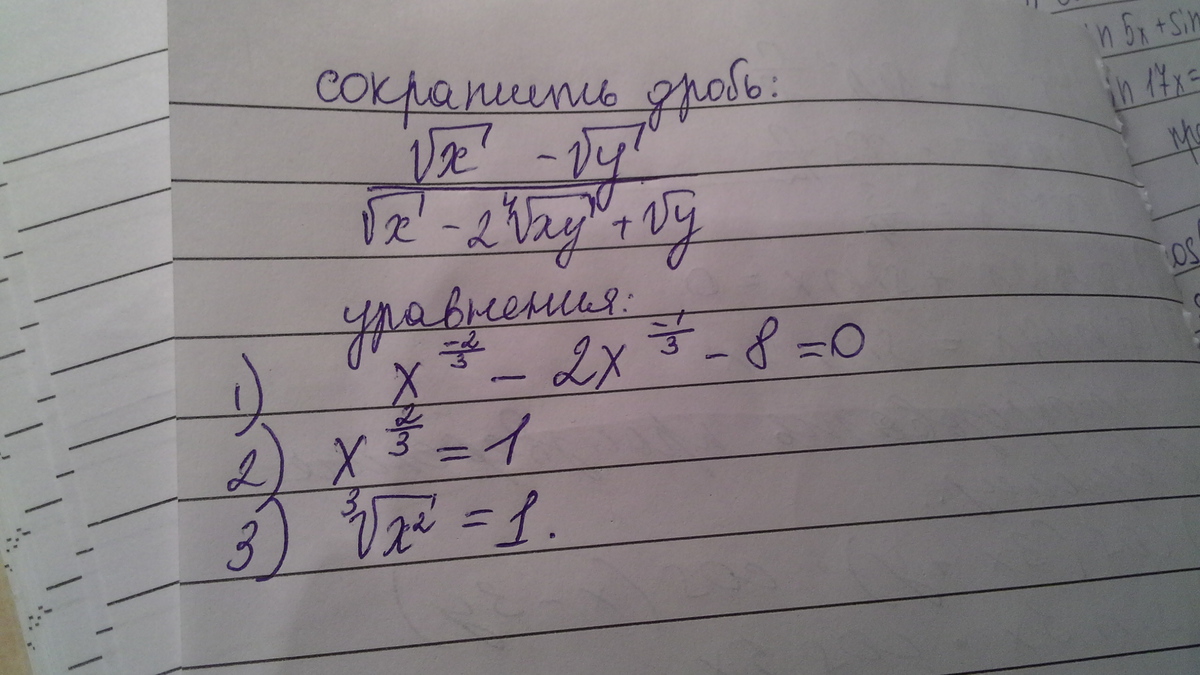 сократить дробь:
√x - √y
√x - 2∜xy + √y
уравнения:
1) x^(-2/3) - 2x^(-1/3) - 8 = 0
2) x^(2/3) = 1
3) ∛x² = 1.
in 5x + sin
in 17x =